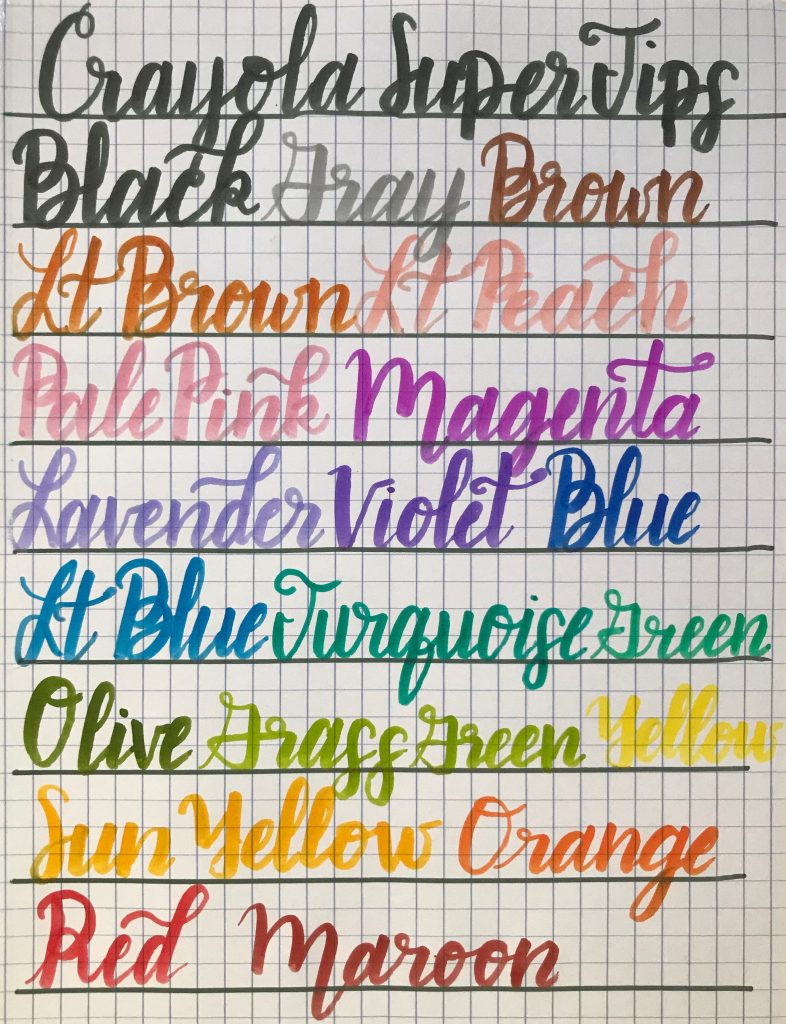 Crayola SuperTips
Black Gray Brown
Lt Brown Lt Peach
Pale Pink Magenta
Lavender Violet Blue
Lt Blue Turquoise Green
Olive Grass Green Yellow
Sun Yellow Orange
Red Maroon